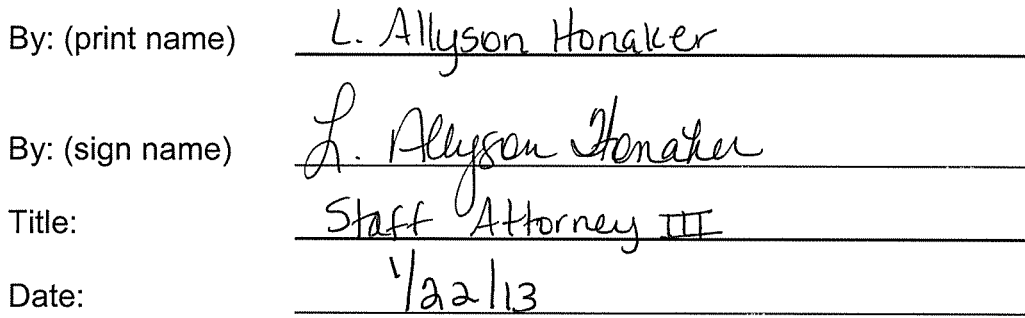 By: (print name) L. Allyson Honaker
By: (sign name) L. Allyson Honaker
Title: Staff Attorney III
Date: 1/22/13